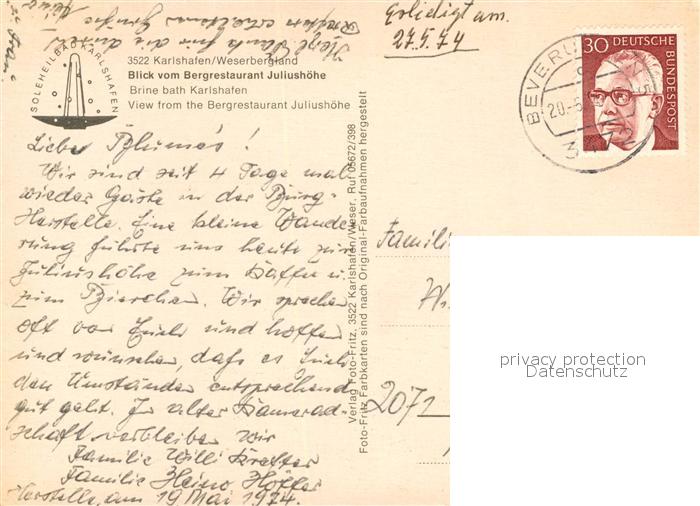 Erledigt am.
27.5.74
30 DEUTSCHE BUNDESPOST
BEVERU
20.-5
SOLEHEILBAD KARLSHAFEN
3522 Karlshafen/Weserbergland
Blick vom Bergrestaurant Juliushöhe
Brine bath Karlshafen
View from the Bergrestaurant Juliushöhe
Liebe Blume's!
Wir sind seit 4 Tage mal
wieder Gäste in der Burg-
Herstelle. Eine kleine Wande
rung führte uns heute zur
Juliushöhe zum Kaffee u.
zum Bierchen. Wir sprechen
oft von Euch und hoffen
und wünschen, daß es Euch
den Umständen entsprechend
gut geht. In alter Kamerad-
schaft verbleiben wir
Familie Willi
Familie Heino
Herstelle, am 19 Mai 1974.
Verlag Foto-Fritz, 3522 Karlshafen/Weser, Ruf 05672/398
Foto-Fritz Farbkarten sind nach Original-Farbaufnahmen hergestellt
Famili
2071
privacy protection
Datenschutz